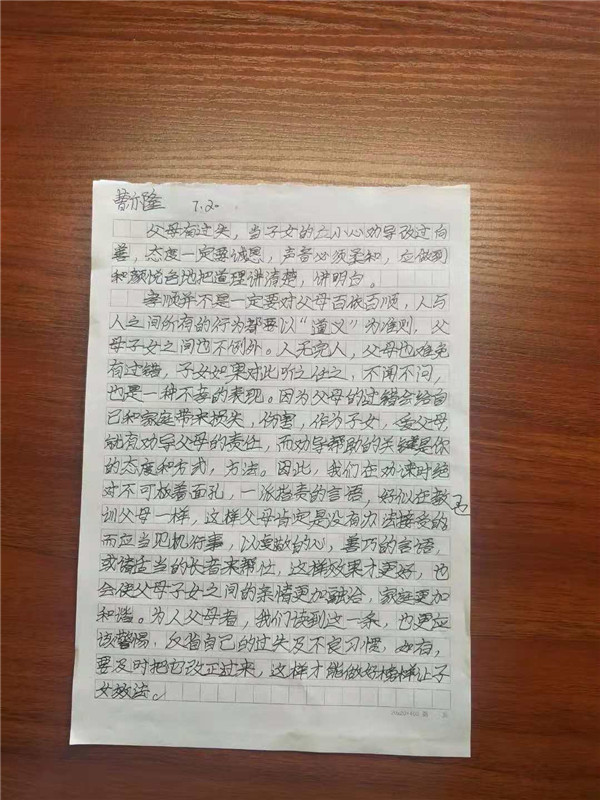 曾尔隆 7.20
父母有过失，当子女的应小心劝导改过向
善，态度一定要诚恳，声音必须柔和，应做到
和颜悦色地把道理讲清楚，讲明白。
孝顺并不是一定要对父母百依百顺，人与
人之间所有的行为都要以“道义”为准则，父
母子女之间也不例外。人无完人，父母也难免
有过错，子女如果对此听之任之，不闻不问，
也是一种不孝的表现。因为父母的过错会给自
己和家庭带来损失，伤害，作为子女，爱父母
就有劝导父母的责任，而劝导帮助的关键是你
的态度和方式，方法。因此，我们在劝谏时绝
对不可板着面孔，一派指责的言语，好似在教
训父母一样，这样父母肯定是没有办法接受的
而应当见机行事，以爱敬的心，善巧的言语，
或请适当的长者来帮忙，这样效果才更好，也
会使父母子女之间的亲情更加融洽，家庭更加
和谐。为人父母者，我们读到这一条，也更应
该警惕，反省自己的过失及不良习惯，如有，
要及时把它改正过来，这样才能做好榜样让子
女效法。